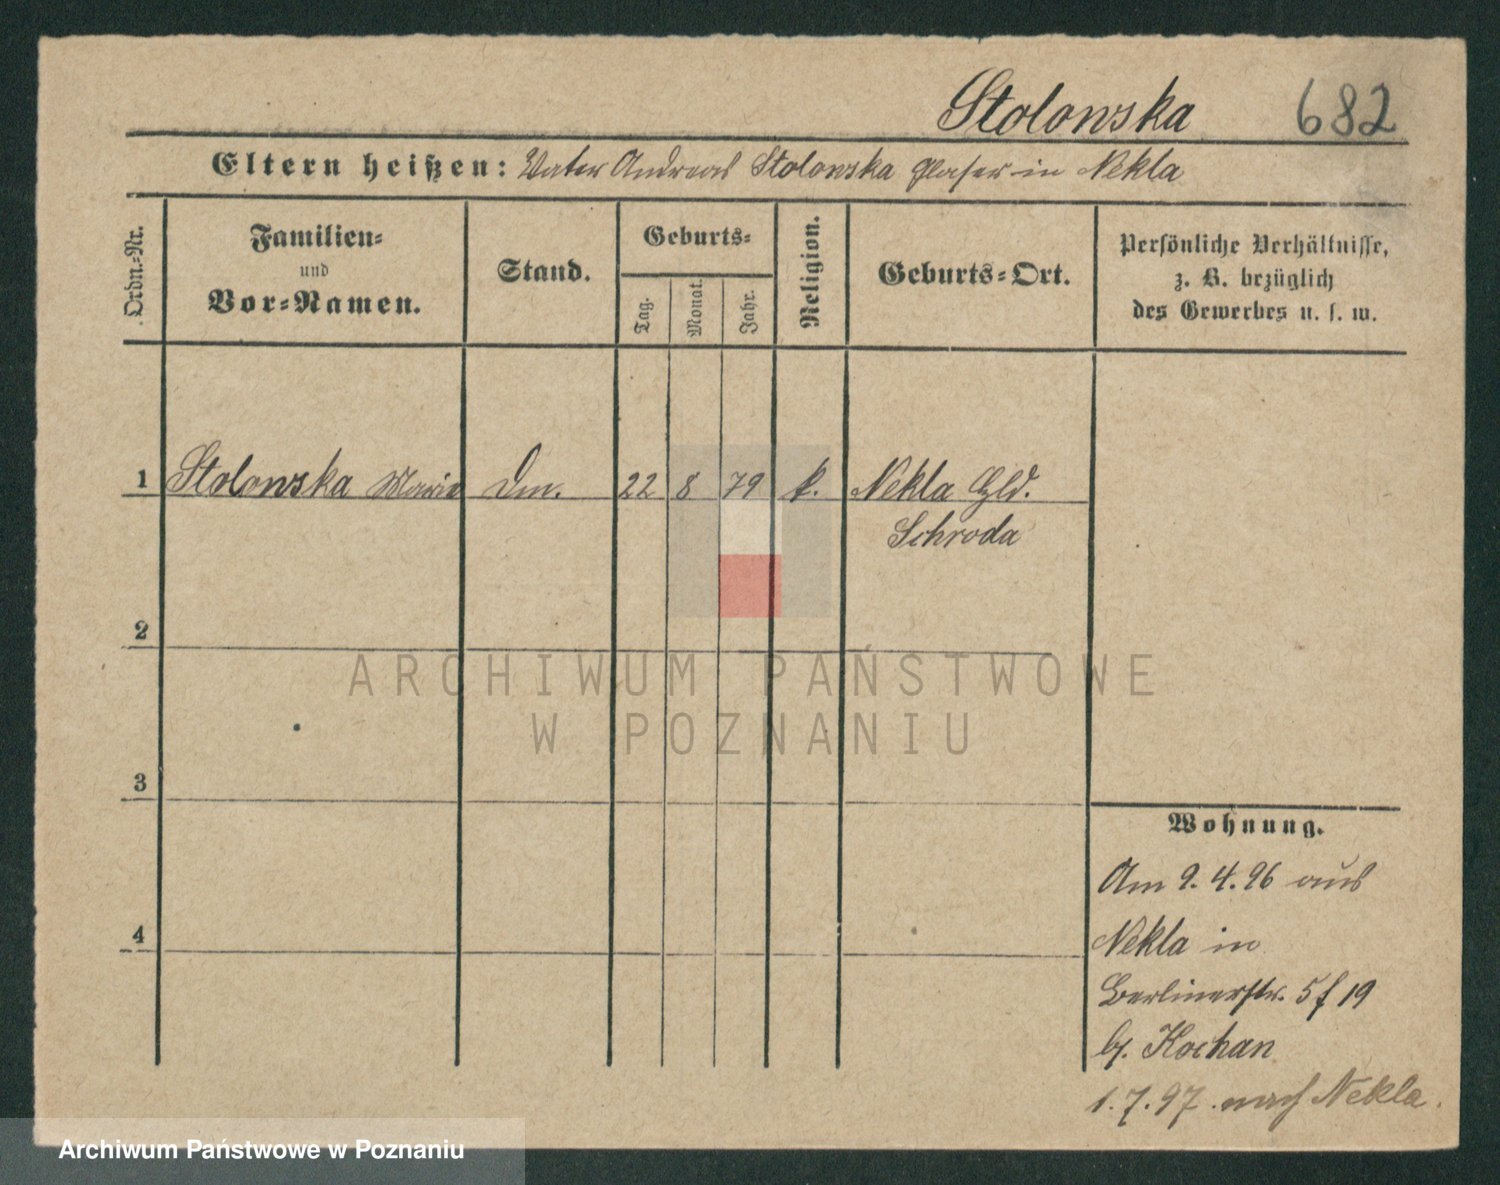 Stolowska 682
Eltern heißen: Vater Andreas Stolowska Glaser in Nekla
Ordn.-Nr.
Familien-
und
Vor-Namen.
Stand.
Geburts-
Tag.
Monat.
Jahr.
Religion.
Geburts-Ort.
Persönliche Verhältnisse,
z. B. bezüglich
des Gewerbes u. s. w.
1 Stolowska Marie Dm. 22 8 79 k. Nekla Hld.
Schroda
2
3
4
ARCHIWUM PAŃSTWOWE
W POZNANIU
Wohnung.
Am 9.4.96 aus
Nekla in
Berlinerstr. 5 f 19
b. Kochan
1.7.97. nach Nekla.
Archiwum Państwowe w Poznaniu